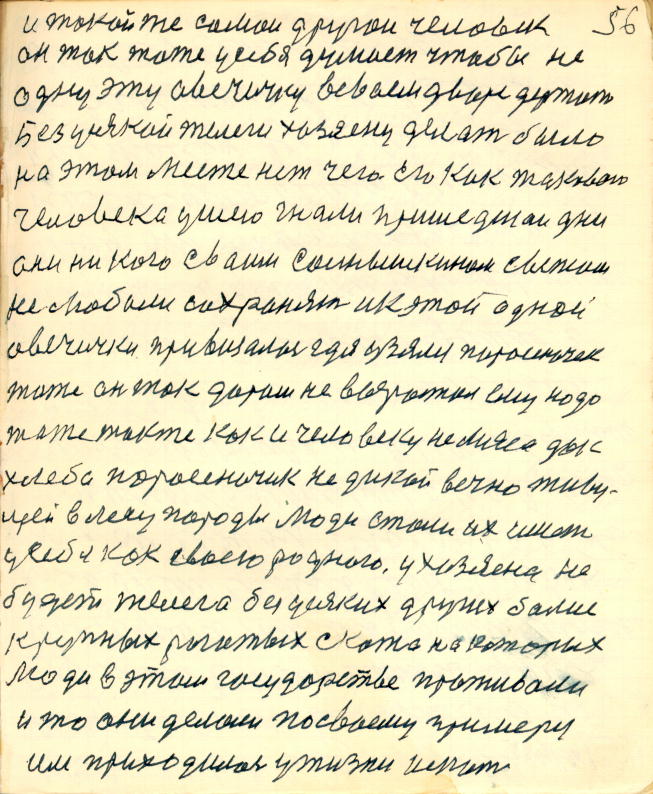 56
и такой же самой другой человек
он так тоже у себя думает чтобы не
одну эту овечичку в своем дворе держать
Без у некой телеги хозяену делат было
на этом месте нет чего его как такового
человека у него гнали пришедшои дни
они ни кого с ваши солнышкином светом
не мобоми сохранят и к этой одной
овечички привизалос где взяли поросеночек
тоже он так даром не ему надо
тоже такте как и человеку не мяса дык
хлеба поросеночик не дикой вечно живу-
щей в лесу породы моди стали их имет
у себя как своего родного. у хозяена не
будет телега без усяких других болие
крупных рогатых скота на которых
моди в этом государстве проживали
и то они делали по своему примеру
им приходилос у жизни играт